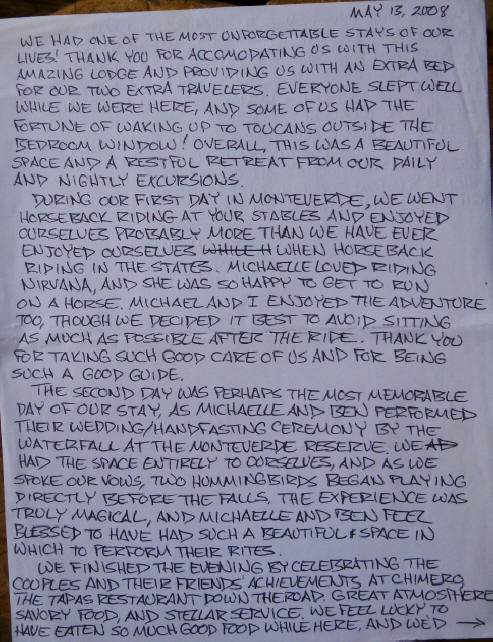 MAY 13, 2008
WE HAD ONE OF THE MOST UNFORGETTABLE STAYS OF OUR
LIVES! THANK YOU FOR ACCOMODATING US WITH THIS
AMAZING LODGE AND PROVIDING US WITH AN EXTRA BED
FOR OUR TWO EXTRA TRAVELERS. EVERYONE SLEPT WELL
WHILE WE WERE HERE, AND SOME OF US HAD THE
FORTUNE OF WAKING UP TO TOUCANS OUTSIDE THE
BEDROOM WINDOW! OVERALL, THIS WAS A BEAUTIFUL
SPACE AND A RESTFUL RETREAT FROM OUR DAILY
AND NIGHTLY EXCURSIONS.
DURING OUR FIRST DAY IN MONTEVERDE, WE WENT
HORSEBACK RIDING AT YOUR STABLES AND ENJOYED
OURSELVES PROBABLY MORE THAN WE HAVE EVER
ENJOYED OURSELVES WHILE H WHEN HORSEBACK
RIDING IN THE STATES. MICHAELLE LOVED RIDING
NIRVANA, AND SHE WAS SO HAPPY TO GET TO RUN
ON A HORSE. MICHAEL AND I ENJOYED THE ADVENTURE
TOO, THOUGH WE DECIDED IT BEST TO AVOID SITTING
AS MUCH AS POSSIBLE AFTER THE RIDE. THANK YOU
FOR TAKING SUCH GOOD CARE OF US AND FOR BEING
SUCH A GOOD GUIDE.
THE SECOND DAY WAS PERHAPS THE MOST MEMORABLE
DAY OF OUR STAY, AS MICHAELLE AND BEN PERFORMED
THEIR WEDDING/HANDFASTING CEREMONY BY THE
WATERFALL AT THE MONTEVERDE RESERVE. WE
HAD THE SPACE ENTIRELY TO OURSELVES, AND AS WE
SPOKE OUR VOWS, TWO HUMMINGBIRDS BEGAN PLAYING
DIRECTLY BEFORE THE FALLS. THE EXPERIENCE WAS
TRULY MAGICAL, AND MICHAELLE AND BEN FEEL
BLESSED TO HAVE HAD SUCH A BEAUTIFUL SPACE IN
WHICH TO PERFORM THEIR RITES.
WE FINISHED THE EVENING BY CELEBRATING THE
COUPLES AND THEIR FRIENDS' ACHIEVEMENTS AT CHIMERO,
THE TAPAS RESTAURANT DOWN THE ROAD. GREAT ATMOSPHERE,
SAVORY FOOD, AND STELLAR SERVICE. WE FEEL LUCKY TO
HAVE EATEN SO MUCH GOOD FOOD WHILE HERE, AND WE'D →